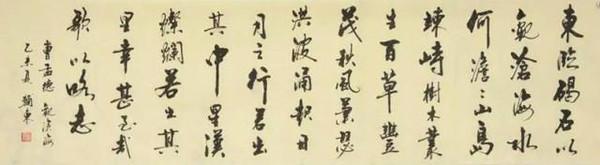 東臨碣石以
觀滄海水
何澹々山島
竦峙樹木叢
生百草豐
茂秋風蕭瑟
洪波涌起日
月之行若出
其中星漢
燦爛若出其
里幸甚至哉
歌以詠志
曹孟德 觀滄海
乙未夏